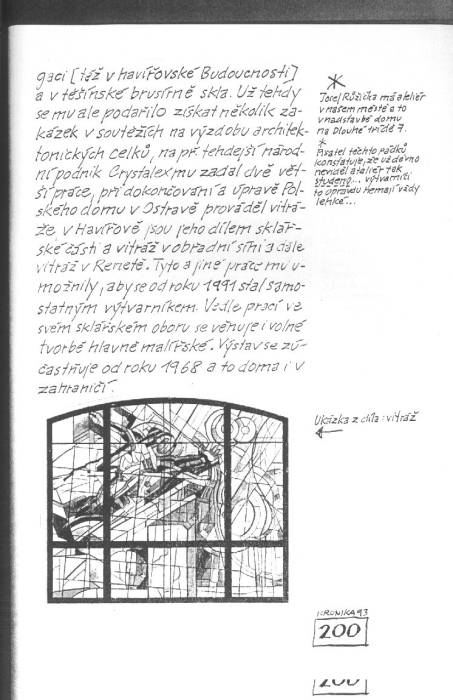 gaci [též v havířovské Budoucnosti]
a v těšínské brusírně skla. Už tehdy
se mu ale podařilo získat několik za-
kázek v soutěžích na výzdobu architek-
tonických celků, na př. tehdejší národ-
ní podnik Crystalex mu zadal dvě vět-
ší práce, při dokončování a úpravě Pol-
ského domu v Ostravě prováděl vitrá-
že, v Havířově jsou jeho dílem sklář-
ské části a vitráž v obřadní síni a dále
vitráž v Renetě. Tyto a jiné práce mu u-
možnily, aby se od roku 1991 stal samo-
statným výtvarníkem. Vedle prací ve
svém sklářském oboru se věnuje i volné
tvorbě hlavně malířské. Výstav se zú-
častňuje od roku 1968 a to doma i v
zahraničí.
*
Josef Růžička má ateliér
v našem městě a to
v nadstavbě domu
na Dlouhé třídě 7.
*
Pisatel těchto řádků
konstatuje, že už dávno
neviděl ateliér tak
studený... výtvarníci
to opravdu nemají vždy
lehké...
Ukázka z díla: vitráž
KRONIKA 93
200
200